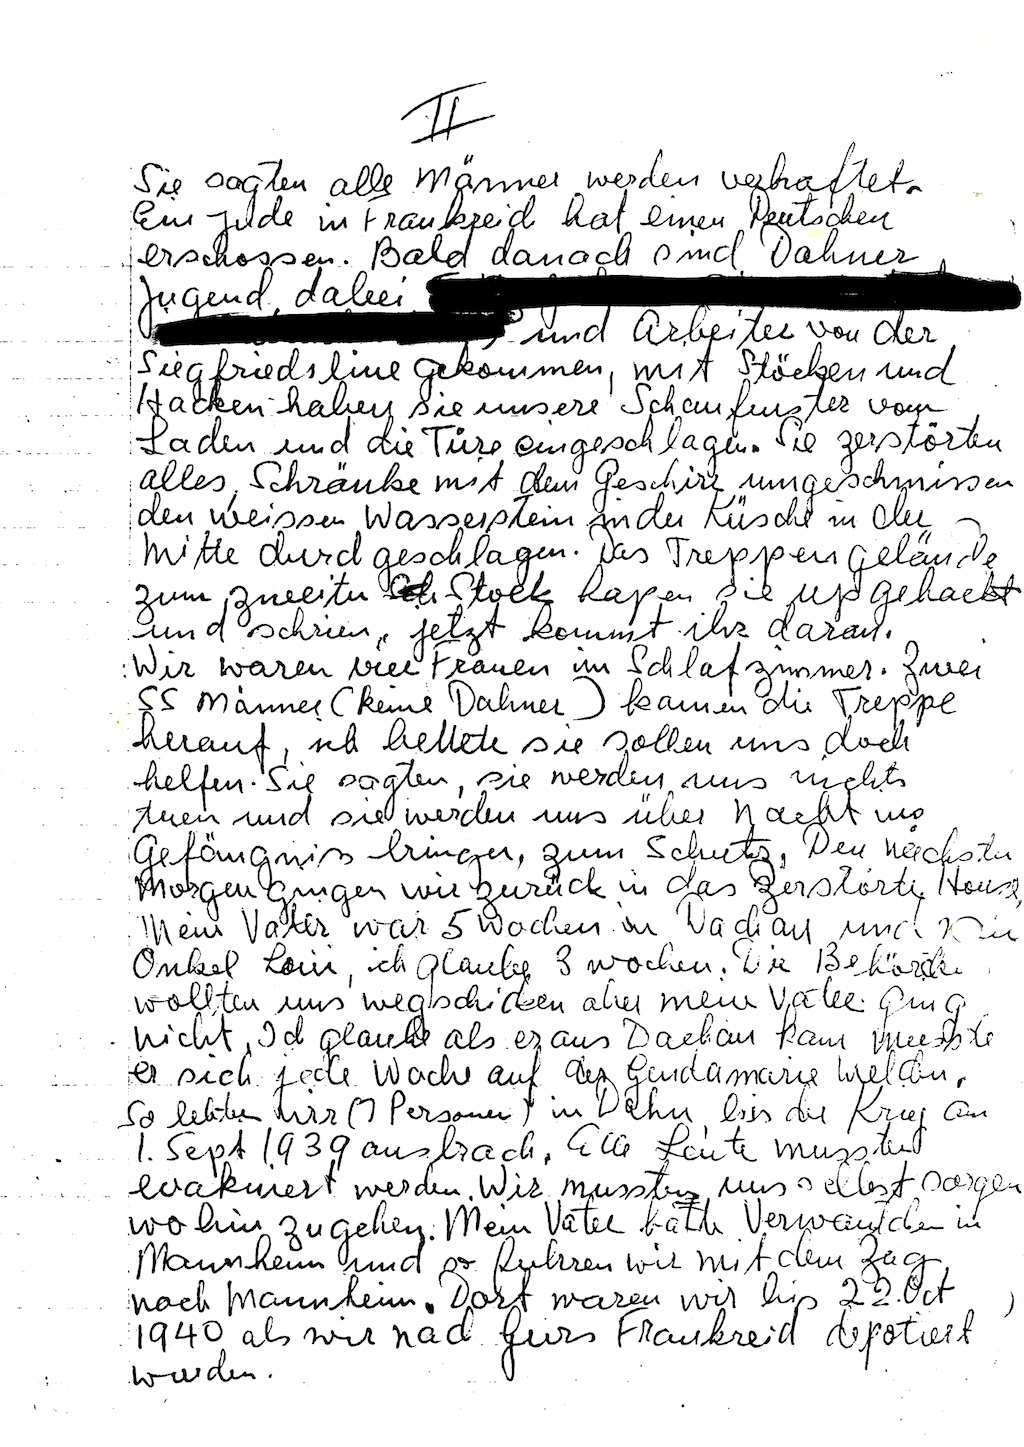 II
Sie sagten alle Männer werden verhaftet.
Ein Jude in Frankreich hat einen Deutschen
erschossen. Bald danach sind Dahner
Jugend, dabei
und Arbeiter von der
Siegfriedsline gekommen, mit Stöcken und
Hacken haben sie unsere Schaufenster vom
Laden und die Türe eingeschlagen. Sie zerstörten
alles, Schränke mit dem Geschirr umgeschmissen
den weissen Wasserstein in der Küsche in der
Mitte durchgeschlagen. Das Treppengelände
zum zweiten Stock haben sie upgehackt
und schrien, jetzt kommt ihr daran.
Wir waren vier Frauen im Schlafzimmer. Zwei
SS Männer (keine Dahner) kamen die Treppe
herauf, ich bettete sie sollen uns doch
helfen. Sie sagten, sie werden uns nichts
tuen und sie werden uns über Nacht ins
Gefängnis bringen, zum Schutz. Den nächsten
Morgen gingen wir zurück in das zerstörte House,
Mein Vater war 5 Wochen in Dachau und
Onkel ich glaube 3 wochen. Die Behörde
wollten uns wegschicken aber mein Vater ging
nicht, Ich glaube als er aus Dachau kam musste
er sich jede Woche auf der Gendamarie melden.
So lebten wir (7 Personen) in Dahn, bis der Krieg am
1. Sept 1939 ausbrach. Alle Leute mussten
evakuiert werden. Wir mussten uns selbst sorgen
wohin zugehen. Mein Vater hatte Verwandten in
Mannheim und so fuhren wir mit dem Zug
nach Mannheim. Dort waren wir bis 22. Oct
1940 als wir nach Gurs Frankreid depotiert
wurden.